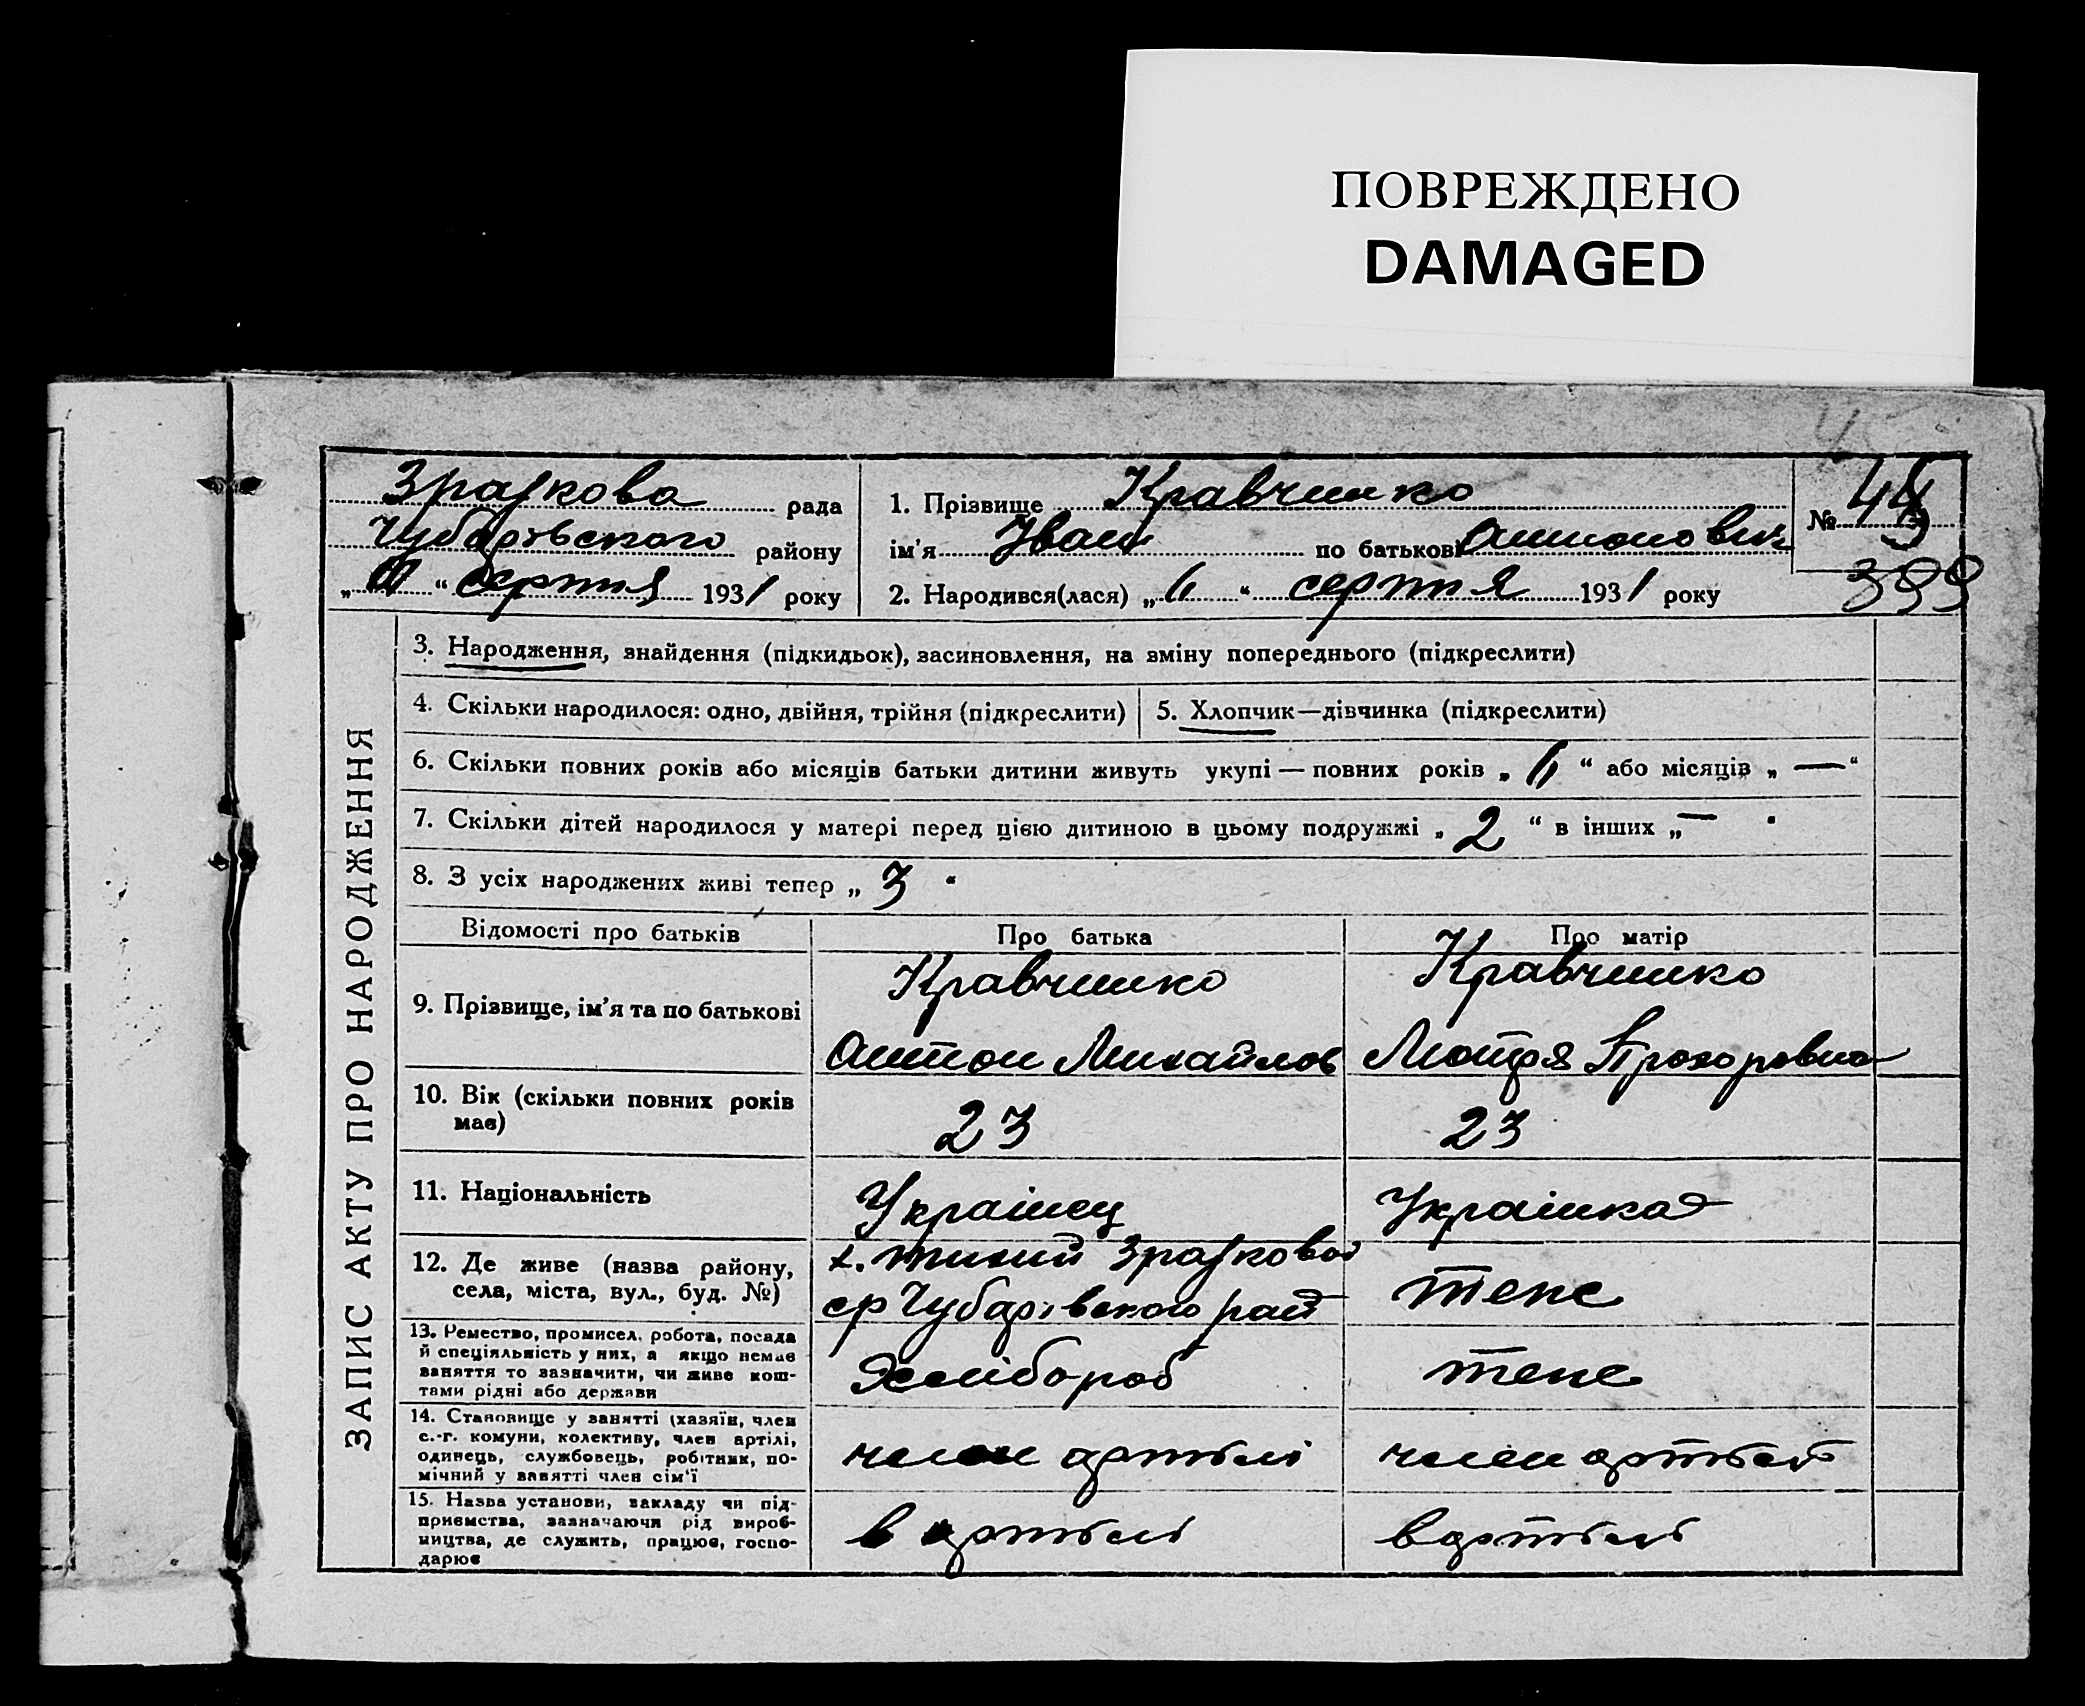 ПОВРЕЖДЕНО
DAMAGED
Зразкова рада
Чубарівського району
" " серпня 1931 року
1. Прізвище Кравченко
ім'я Іван по батькові Антонович
2. Народився(лася) „ 6 “ серпня 1931 року
№ 44
399
ЗАПИС АКТУ ПРО НАРОДЖЕННЯ
3. Народження, знайдення (підкидьок), засиновлення, на зміну попереднього (підкреслити)
4. Скільки народилося: одно, двійня, трійня (підкреслити)
5. Хлопчик—дівчинка (підкреслити)
6. Скільки повних років або місяців батьки дитини живуть укупі — повних років „ 6 “ або місяців „ — “
7. Скільки дітей народилося у матері перед цією дитиною в цьому подружжі „ 2 “ в інших „ — “
8. З усіх народжених живі тепер „ 3 “
Відомості про батьків
Про батька
Про матір
9. Прізвище, ім'я та по батькові
Кравченко
Антон Михайлов
Кравченко
Мотря Прохоровна
10. Вік (скільки повних років
має)
23
23
11. Національність
Українец
Українка
12. Де живе (назва району,
села, міста, вул., буд. №)
х. тихий Зразковой
ср Чубарівского рай
теж
13. Ремество, промисел, робота, посада
й спеціяльність у них, а якщо немає
заняття то зазначити, чи живе кош-
тами рідні або держави
Хлібороб
теж
14. Становище у занятті (хазяїн, член
с.-г. комуни, колективу, член артілі,
одинець, службовець, робітник, по-
мічний у занятті член сім'ї
член артілі
член артілі
15. Назва установи, закладу чи під-
приємства, зазначаючи рід вироб-
ництва, де служить, працює, госпо-
дарює
в артілі
в артілі